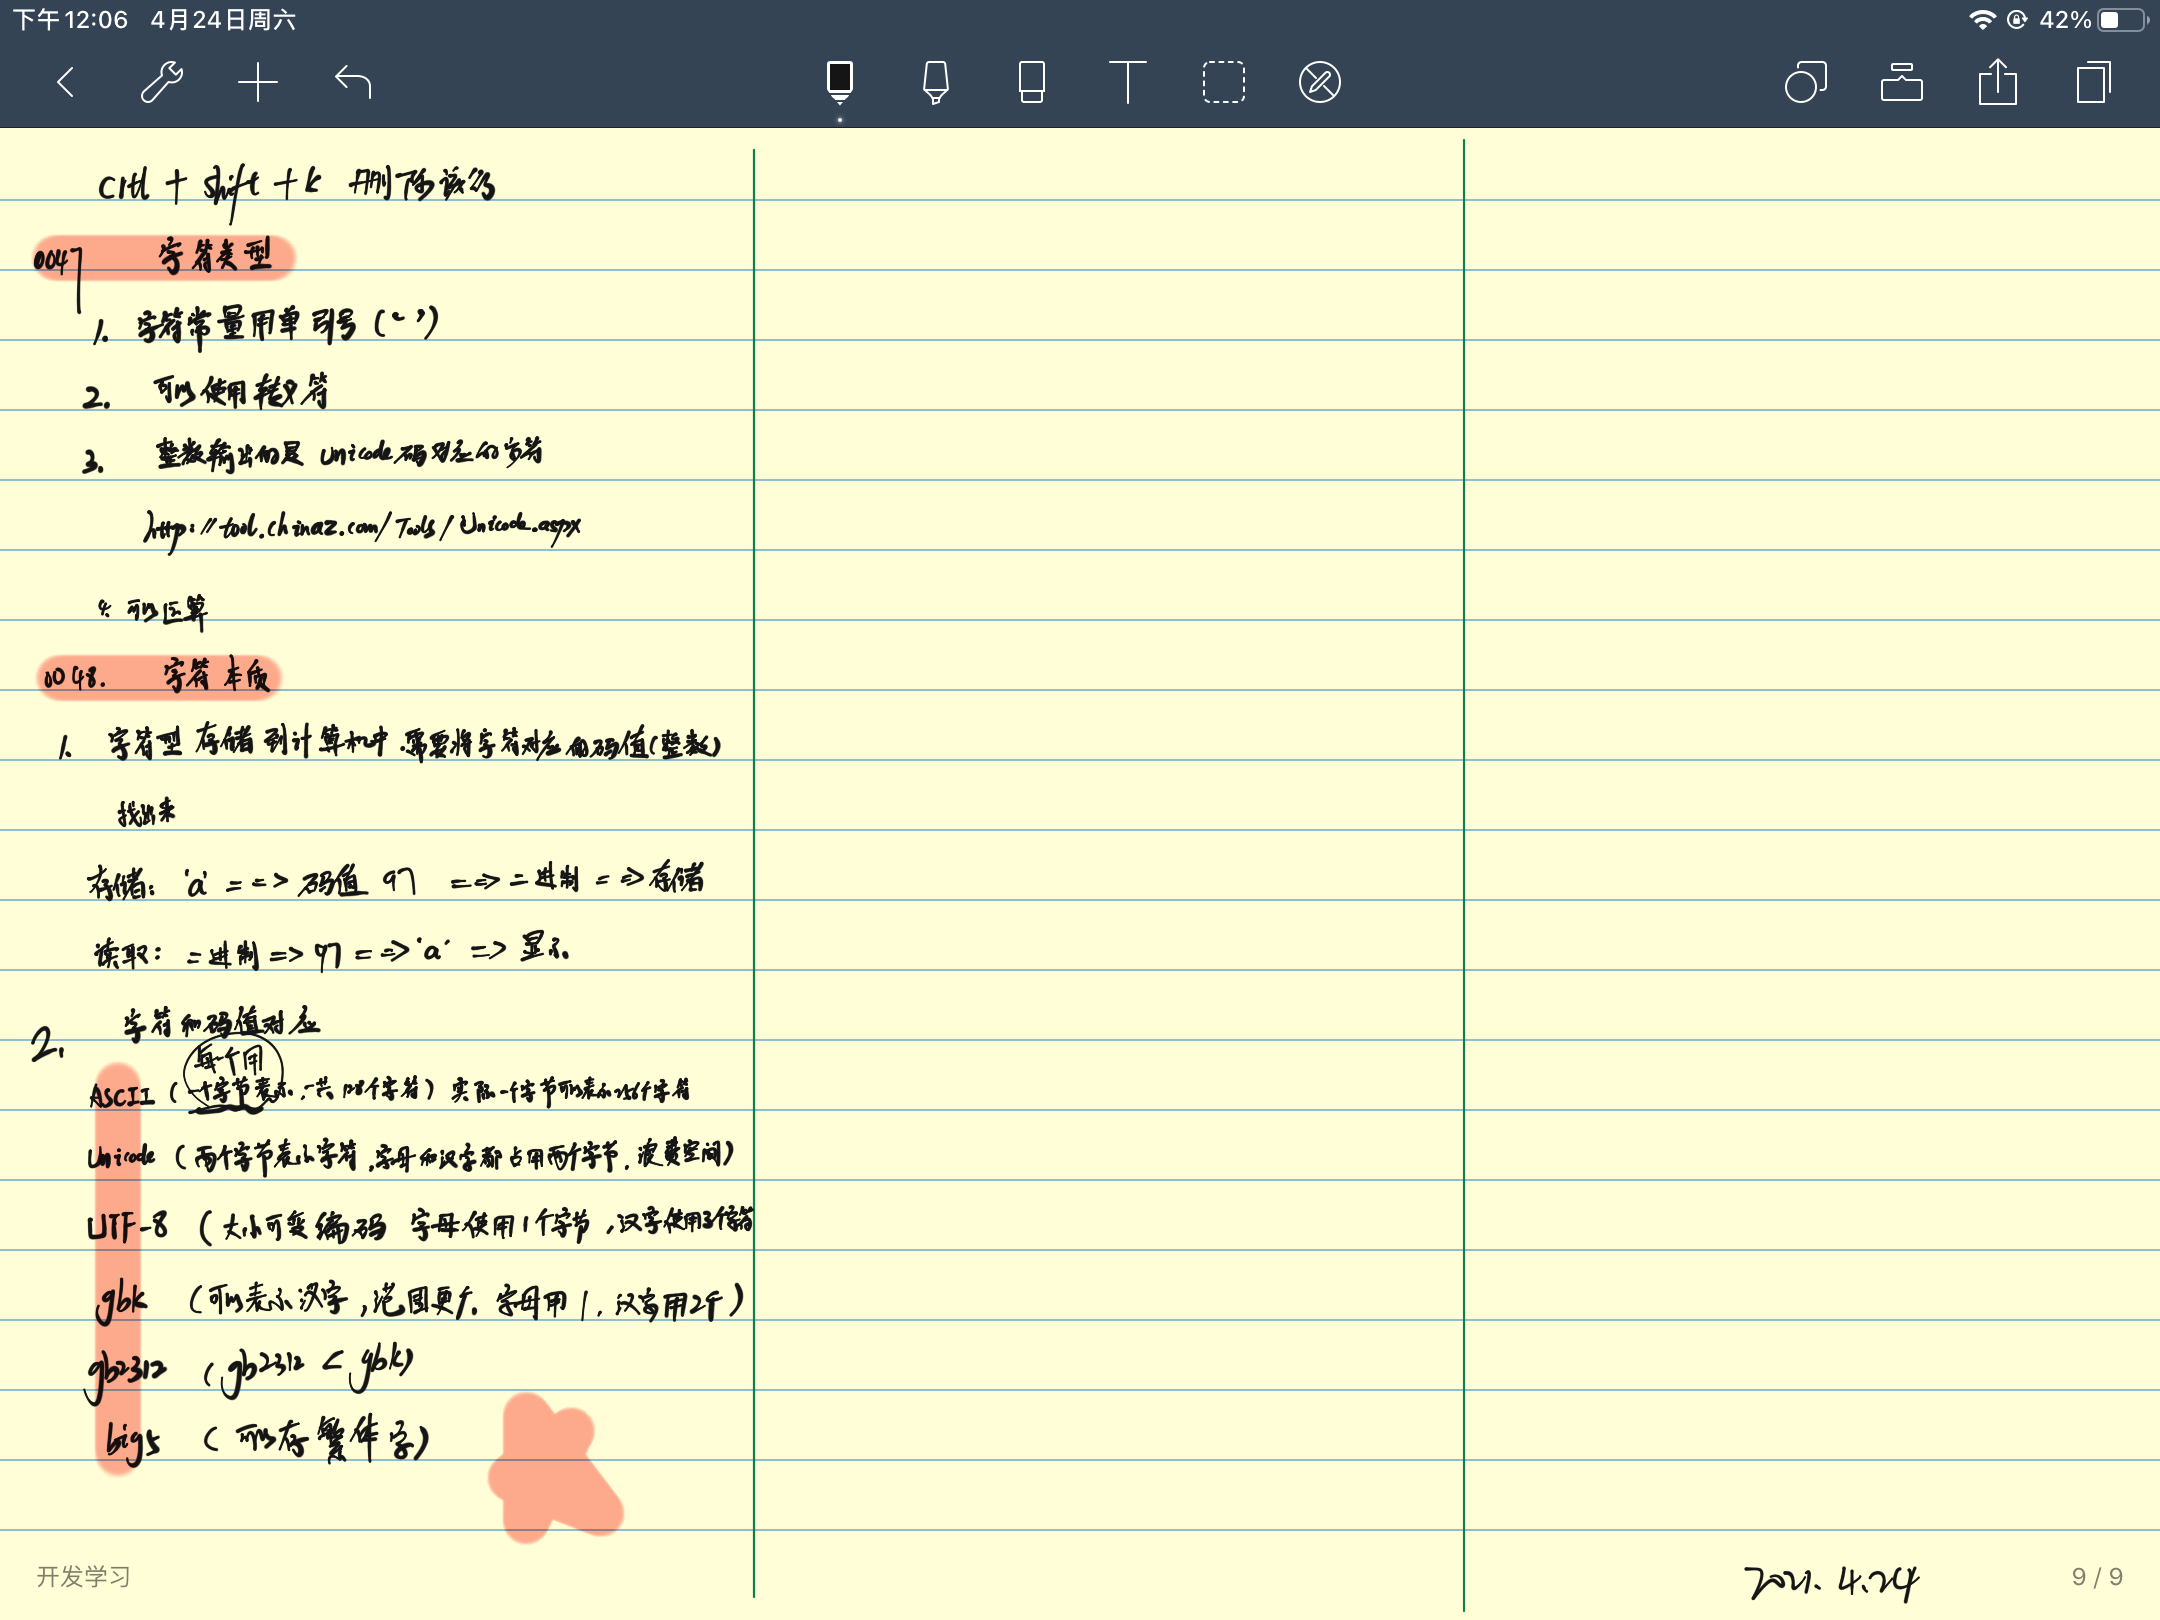 下午12:06 4月24日周六
42%
ctrl + shift + k 删除该行
0047 字符类型
1. 字符常量用单引号(‘ ’)
2. 可以使用转义符
3. 整数输出的是 Unicode码对应的字符
http://tool.chinaz.com/Tools/Unicode.aspx
4. 可以运算
0048. 字符本质
1. 字符型 存储 到计算机中.需要将字符对应的码值(整数)
找出来
存储: 'a' ==> 码值 97 ==> 二进制 ==> 存储
读取: 二进制 => 97 ==> 'a' => 显示
2. 字符和码值对应
每个用
ASCII (一个字节表示,一共128个字符) 实际一个字节可以表示256个字符
Unicode (两个字节表示字符,字母和汉字都占用两个字节,浪费空间)
UTF-8 (大小可变编码 字母使用1个字节,汉字使用3个字符
gbk (可以表示汉字,范围更广. 字母用1, 汉字用2个)
gb2312 (gb2312 < gbk)
big5 (可以存繁体字)
开发学习
2021.4.24
9 / 9